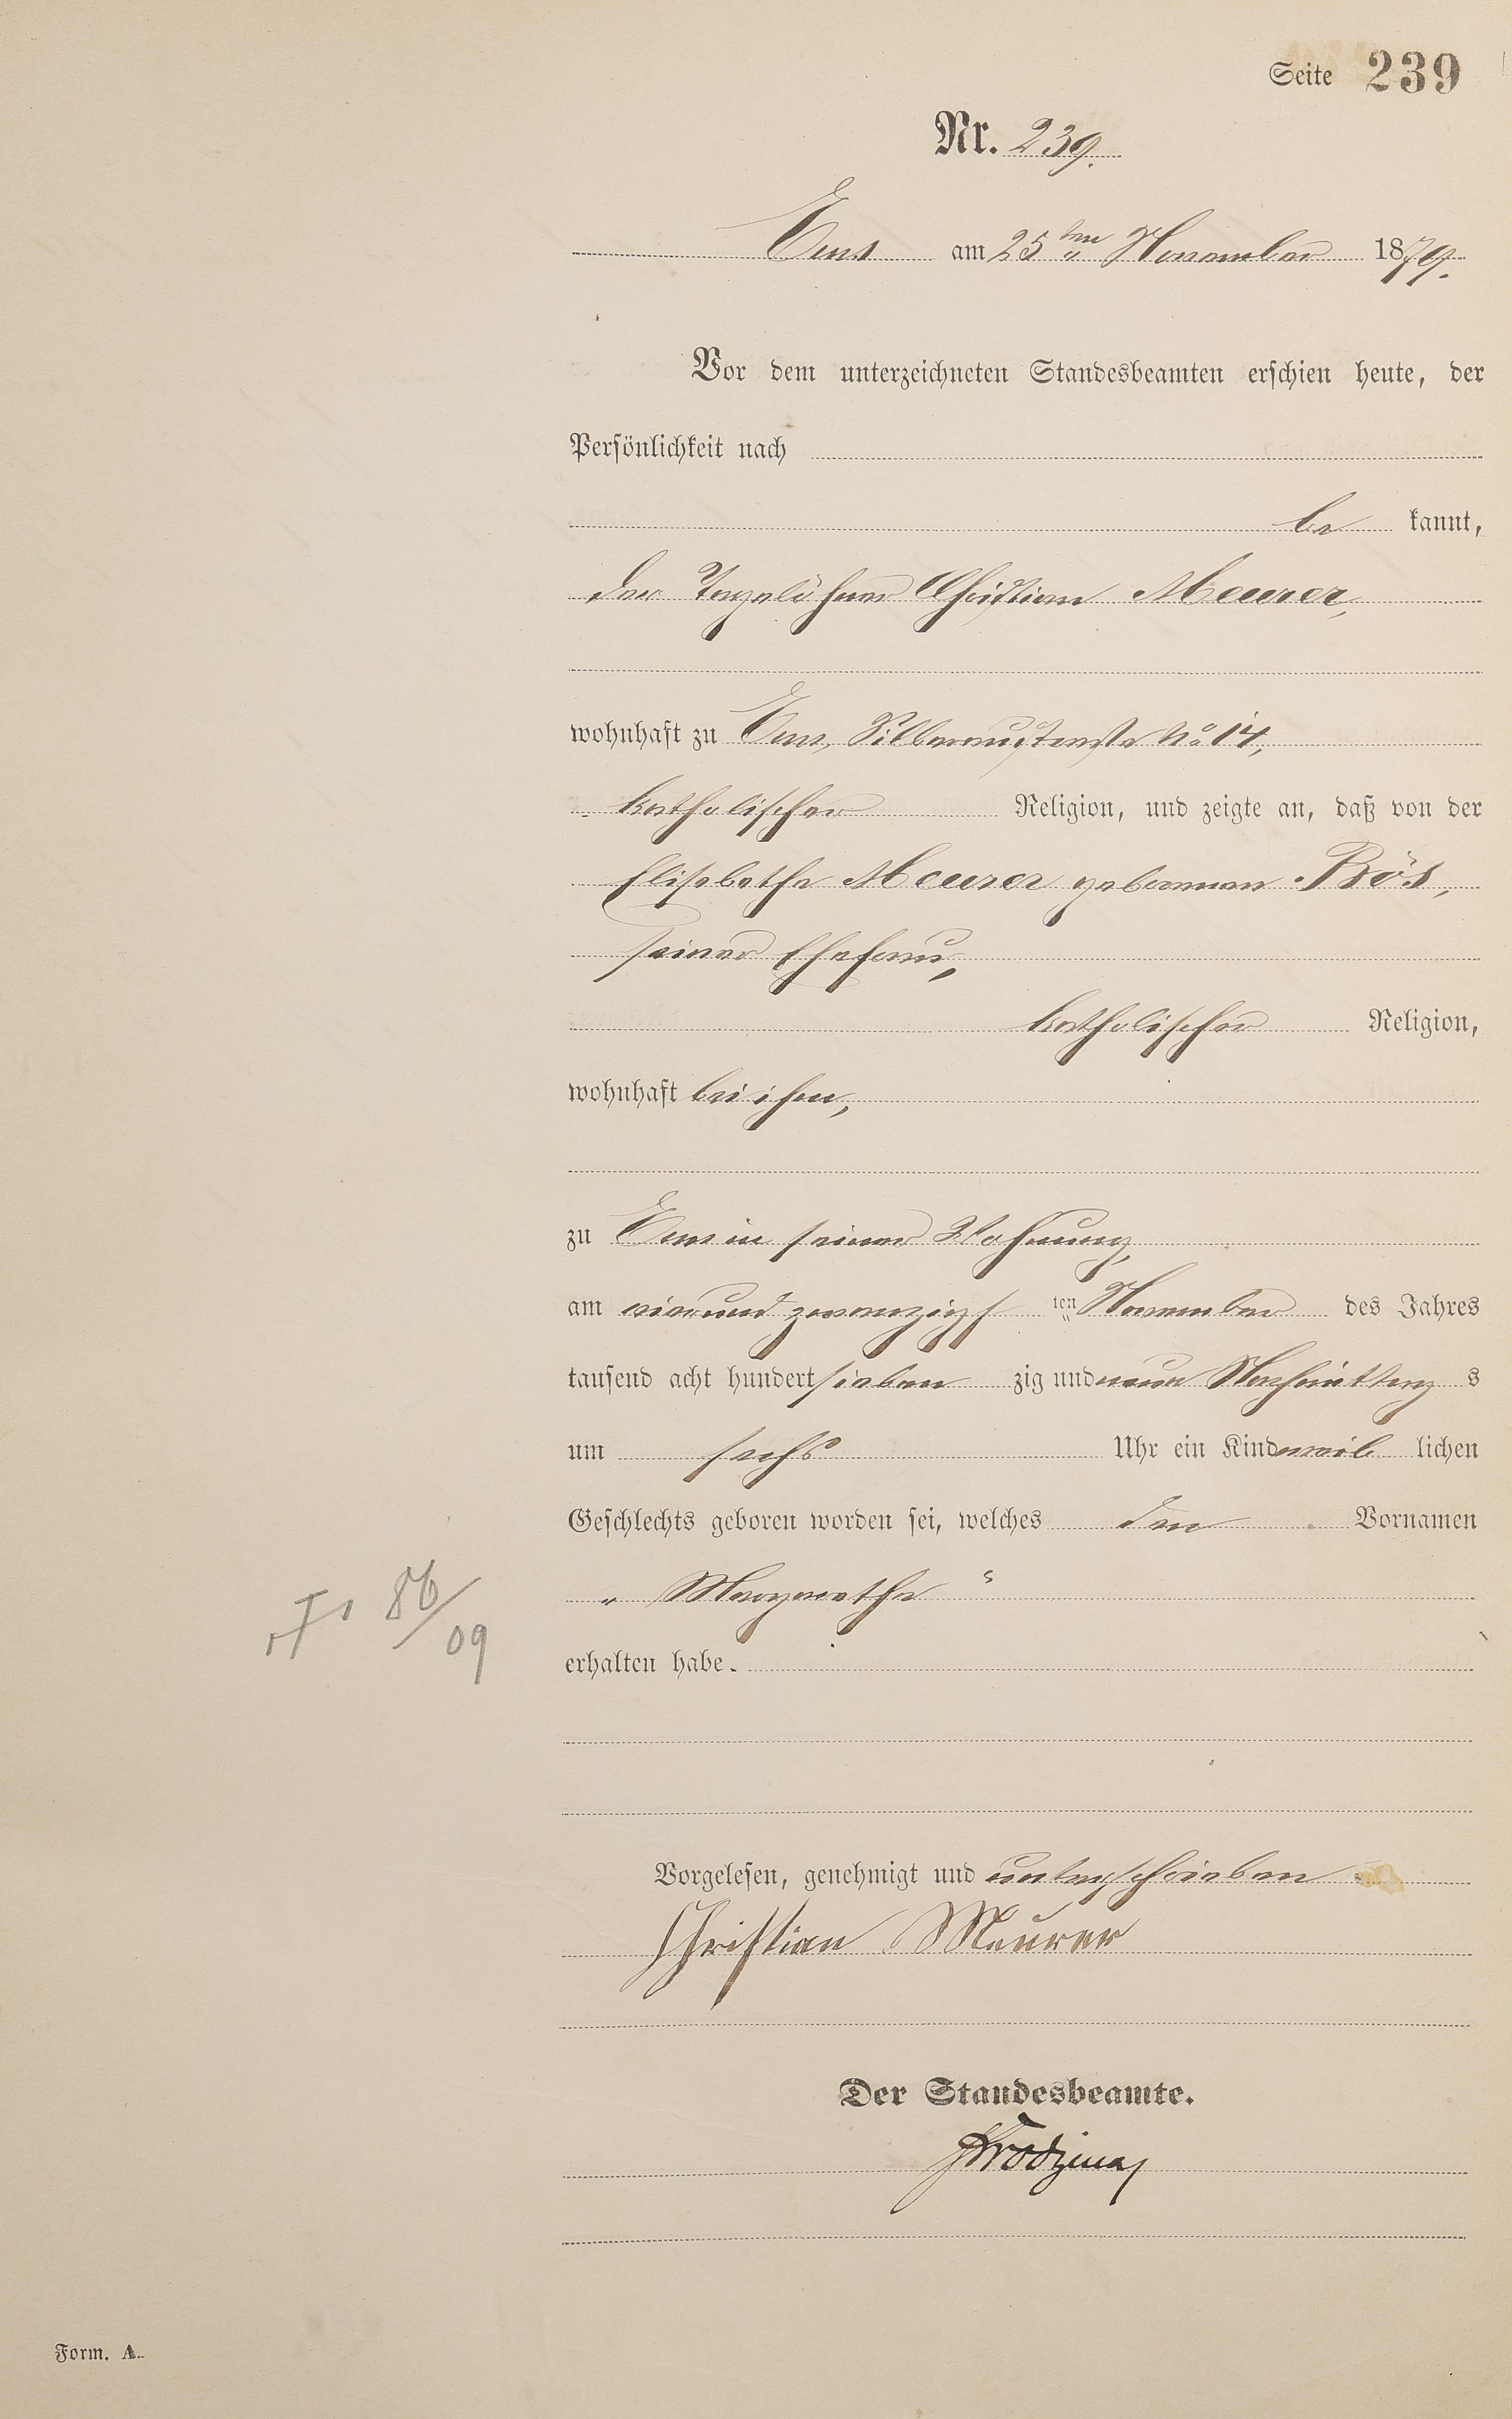 Seite 239
Nr. 239.
Ems am 25ten November 1879.
Vor dem unterzeichneten Standesbeamten erschien heute, der
Persönlichkeit nach
be kannt,
der Tagelöhner Christian Meurer,
wohnhaft zu Ems, Silberaustraße No 14,
katholischer Religion, und zeigte an, daß von der
Elisabetha Meurer geborenen Bös,
seiner Ehefrau,
katholischer Religion,
wohnhaft bei ihm,
zu Ems in seiner Wohnung,
am vierundzwanzigs ten November des Jahres
tausend acht hundert sieben zig und neun Nachmittag s
um sechs Uhr ein Kind weib lichen
Geschlechts geboren worden sei, welches den Vornamen
„ Margaretha “
86/09
erhalten habe.
Vorgelesen, genehmigt und unterschrieben
Christian Meurer
Der Standesbeamte.
Form. A.